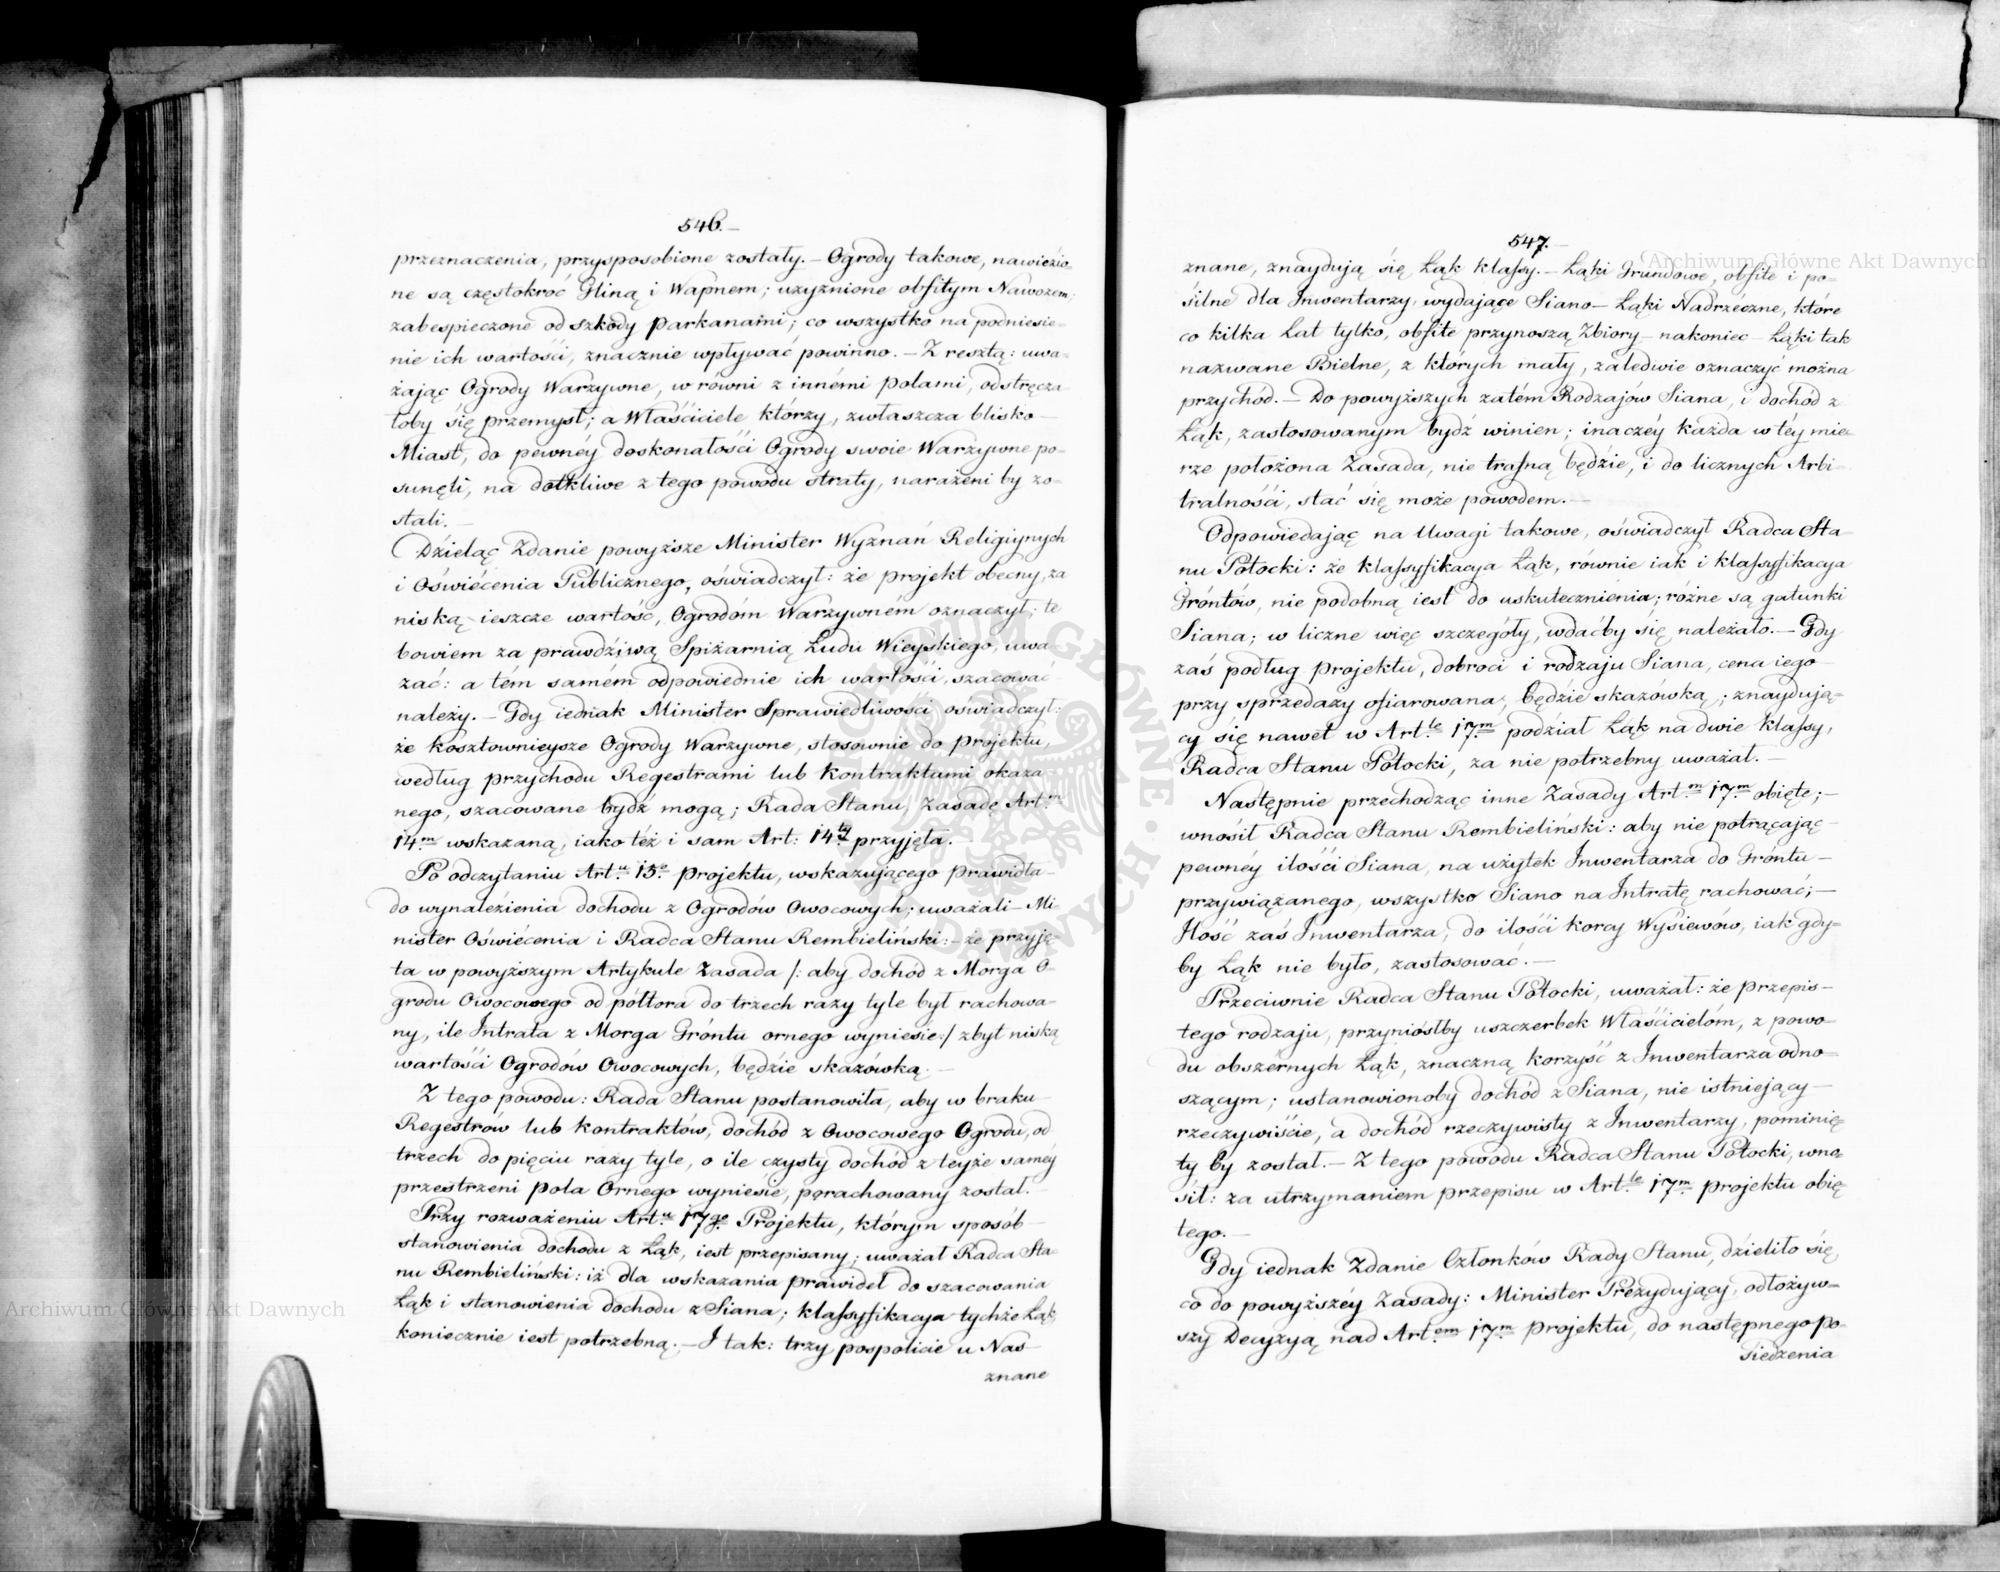 546.—
przeznaczenia, przysposobione zostały. — Ogrody takowe, nawiezio-
ne są częstokroć Gliną i Wapnem; użyźnione obfitym Nawozem;
zabespieczone od szkody parkanami; co wszystko na podniesie-
nie ich wartości, znacznie wpływać powinno. — Z resztą: uwa-
żając Ogrody Warzywne, w równi z innémi polami, odstręcza-
łoby się przemysł; a Właściciele którzy, zwłaszcza blisko —
Miast, do pewnéy doskonałości Ogrody swoie Warzywne po-
sunęli, na dotkliwe z tego powodu straty, narażeni by zo-
stali. —
Dzieląc Zdanie powyższe Minister Wyznań Religiynych
i Oświécenia Publicznego, oświadczył: że projekt obecny, za
niską ieszcze wartość, Ogrodóm Warzywném oznaczył; te
bowiem za prawdziwą Spiżarnią Ludu Wieyskiego, uwa-
żać: a tém samém odpowiednie ich wartości, szacować
należy. — Gdy iednak Minister Sprawiedliwości oświadczył:
że kosztownieysze Ogrody Warzywne, stosownie do projektu,
według przychodu Regestrami lub kontraktami okaza-
nego, szacowane bydź mogą; Rada Stanu, zasadę Art.m
14.m wskazaną, iako téż i sam Art: 14.ty przyjęła. —
Po odczytaniu Art.u 15.o projektu, wskazującego prawidła —
do wynaleźienia dochodu z Ogrodów Owocowych; uważali — Mi-
nister Oświécenia i Radca Stanu Rembieliński: — że przyję-
ta w powyższym Artykule Zasada /: aby dochód z Morga O-
grodu Owocowego od półtora do trzech razy tyle był rachowa-
ny, ile Intrata z Morga Gróntu ornego wyniesie :/ zbyt niską
wartości Ogrodów Owocowych, będzie skazówką. —
Z tego powodu: Rada Stanu postanowiła, aby w braku —
Regestrów lub kontraktów, dochód z Owocowego Ogrodu, od
trzech do pięciu razy tyle, o ile czysty dochód z teyże saméy
przestrzeni pola Ornego wyniesie, porachowany został. —
Przy rozważeniu Art.u 17.go Projektu, którym sposób —
stanowienia dochodu z Łąk, iest przepisany; uważał Radca Sta-
nu Rembieliński: iż dla wskazania prawideł do szacowania
Łąk i stanowienia dochodu z Siana; klassyfikacya tychże Łąk,
koniecznie iest potrzebną. — I tak: trzy pospolicie u Nas —
znane
547.—
znane, znaydują się Łąk klassy. — Łąki Grundowe, obfite i po-
silne dla Inwentarzy, wydające Siano — Łąki Nadrzéczne, które
co kilka Lat tylko, obfite przynoszą Zbiory — nakoniec — Łąki tak
nazwane Bielne, z których mały, zaledwie oznaczyć można
przychód. — Do powyższych zatém Rodzajów Siana, i dochód z
Łąk, zastosowanym bydź winien; inaczéy każda w téy mie-
rze położona Zasada, nie trafną będzie, i do licznych Arbi-
tralności, stać się może powodem. —
Odpowiedając na Uwagi takowe, oświadczył Radca Sta-
nu Potocki: że klassyfikacya Łąk, równie iak i klassyfikacya
Gróntów, nie podobną iest do uskutecznienia; różne są gatunki
Siana; w liczne więc szczegóły, wdaćby się należało. — Gdy
zaś podług projektu, dobroci i rodzaju Siana, cena iego —
przy sprzedaży ofiarowana, będzie skazówką; znaydują-
cy się nawet w Art.le 17.m podział Łąk na dwie klassy,
Radca Stanu Potocki, za nie potrzebny uważał. —
Następnie przechodząc inne Zasady Art.m 17.m obięte; —
wnosił Radca Stanu Rembieliński: aby nie potrącając —
pewnéy ilości Siana, na użytek Inwentarza do Gróntu —
przywiązanego, wszystko Siano na Intratę rachować; —
Ilość zaś Inwentarza, do ilości korcy Wysiewów, iak gdy-
by Łąk nie było, zastosować. —
Przeciwnie Radca Stanu Potocki, uważał: że przepis —
tego rodzaju, przyniósłby uszczerbek Właścicielóm, z powo-
du obszérnych Łąk, znaczną korzyść z Inwentarza odno-
szącym; ustanowionoby dochód z Siana, nie istniejący —
rzeczywiście, a dochód rzeczywisty z Inwentarzy, pominię-
ty by został. — Z tego powodu Radca Stanu Potocki, wno-
sił: za utrzymaniem przepisu w Art.le 17.m projektu obię-
tego. —
Gdy iednak Zdanie Członków Rady Stanu, dzieliło się,
co do powyższéy Zasady: Minister Prezydujący, odłożyw-
szy Decyzyą nad Art.em 17.m projektu, do następnego po-
siedzenia
Archiwum Główne Akt Dawnych
Archiwum Główne Akt Dawnych
ARCHIWUM GŁÓWNE AKT DAWNYCH